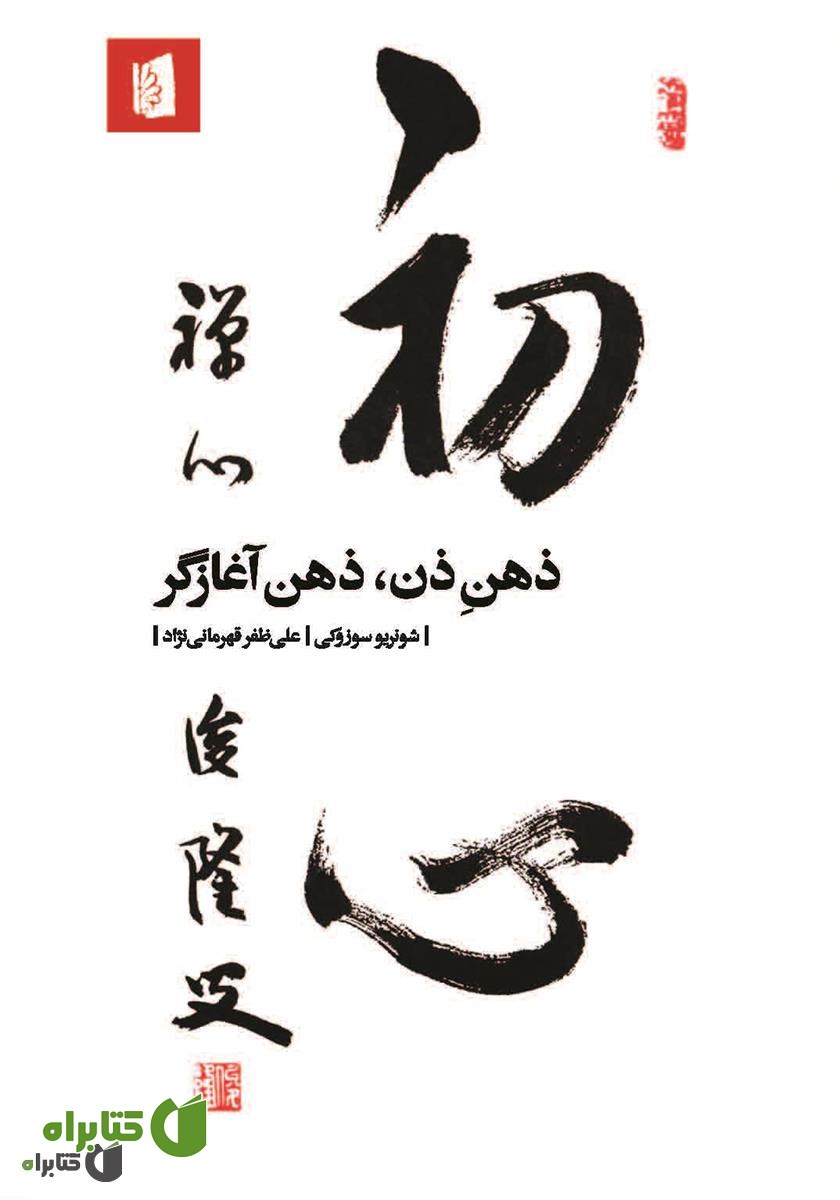 初心
禅心
ذهنِ ذن، ذهن آغازگر
| شونریو سوزوکی | علی‌ظفر قهرمانی‌نژاد |
俊隆
کتابراه
کتابراه